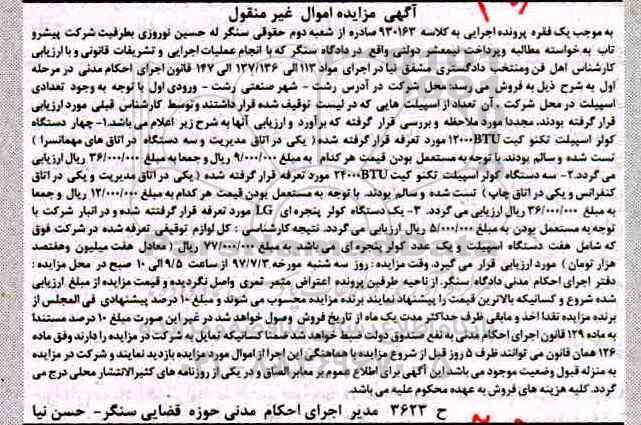 آگهی مزایده اموال غیر منقول
به موجب یک فقره پرونده اجرایی به کلاسه ۹۳۰۱۶۳ صادره از شعبه دوم حقوقی سنگر له حسین نوروزی بطرفیت شرکت پیشرو
تاب به خواسته مطالبه وپرداخت نیمعشر دولتی واقع در دادگاه سنگر که با انجام عملیات اجرایی و تشریفات قانونی و با ارزیابی
کارشناس اهل فن ومنتخب دادگستری مشفق نیا در اجرای مواد ۱۱۳ الی ۱۳۷/۱۳۶ الی ۱۴۷ قانون اجرای احکام مدنی در مرحله
اول به شرح ذیل به فروش می رسد: محل شرکت در آدرس رشت - شهر صنعتی رشت - ورودی اول با توجه به وجود تعدادی
اسپیلت در محل شرکت . آن تعداد از اسپیلت هایی که در لیست توقیف شده قرار داشتند و توسط کارشناس قبلی مورد ارزیابی
قرار گرفته بودند. مجددا مورد ملاحظه و بررسی قرار گرفته که برآورد و ارزیابی آنها به شرح زیر اعلام می باشد.۱- چهار دستگاه
کولر اسپیلت تکنو کیت ۱۲۰۰۰BTU مورد تعرفه قرار گرفته شده ( یکی در اتاق مدیریت و سه دستگاه در اتاق های مهمانسرا )
تست شده و سالم بودند. با توجه به مستعمل بودن قیمت هر کدام به مبلغ ۹/۰۰۰/۰۰۰ ریال و جمعا به مبلغ ۳۶/۰۰۰/۰۰۰ ریال ارزیابی
می گردد.۲- سه دستگاه کولر اسپیلت تکنو کیت ۲۴۰۰۰BTU مورد تعرفه قرار گرفته شده ( یکی در اتاق مدیریت و یکی در اتاق
کنفرانس و یکی در اتاق چاپ ) تست شده و سالم بودند. با توجه به مستعمل بودن قیمت هر کدام به مبلغ ۱۲/۰۰۰/۰۰۰ ریال و جمعا
به مبلغ ۳۶/۰۰۰/۰۰۰ ریال ارزیابی می گردد. ۳- یک دستگاه کولر پنجره ای LG مورد تعرفه قرار گرفتته شده و در انبار شرکت با
توجه به مستعمل بودن به مبلغ ۵/۰۰۰/۰۰۰ ریال ارزیابی می گردد. نتیجه کارشناسی : کل لوازم توقیفی تعرفه شده در شرکت فوق
که شامل هفت دستگاه اسپیلت و یک عدد کولر پنجره ای می باشد به مبلغ ۷۷/۰۰۰/۰۰۰ ریال (معادل هفت میلیون وهفتصد
هزار تومان ) مورد ارزیابی قرار می گیرد. وقت مزایده : روز سه شنبه مورخه ۹۷/۷/۳ از ساعت ۹/۵ الی ۱۰ صبح در محل مزایده :
دفتر اجرای احکام مدنی دادگاه سنگر. از ناحیه طرفین پرونده اعتراض مثمر ثمری واصل نگردیده و قیمت مزایده از مبلغ ارزیابی
شده شروع و کسانیکه بالاترین قیمت را پیشنهاد نمایند برنده مزایده محسوب می شوند و مبلغ ۱۰ درصد پیشنهادی فی المجلس از
برنده مزایده نقدا اخذ و مابقی ظرف حداکثر مدت یک ماه از تاریخ فروش وصول خواهد شد در غیر این صورت مبلغ ۱۰ درصد مستندا
به ماده ۱۲۹ قانون اجرای احکام مدنی به نفع صندوق دولت ضبط خواهد شد ضمنا کسانیکه تمایل به شرکت در مزایده را دارند وفق ماده
۱۲۶ همان قانون می توانند ظرف ۵ روز قبل از شروع مزایده با هماهنگی این اجرا از اموال مورد مزایده بازدید نمایند و شرکت در مزایده
به منزله قبول وضعیت موجود می باشد این آگهی برای اطلاع عموم بر معابر الصاق و در یکی از روزنامه های کثیرالانتشار محلی درج می
گردد. کلیه هزینه های فروش به عهده محکوم علیه می باشد.
ح ۳۶۲۳ مدیر اجرای احکام مدنی حوزه قضایی سنگر- حسن نیا